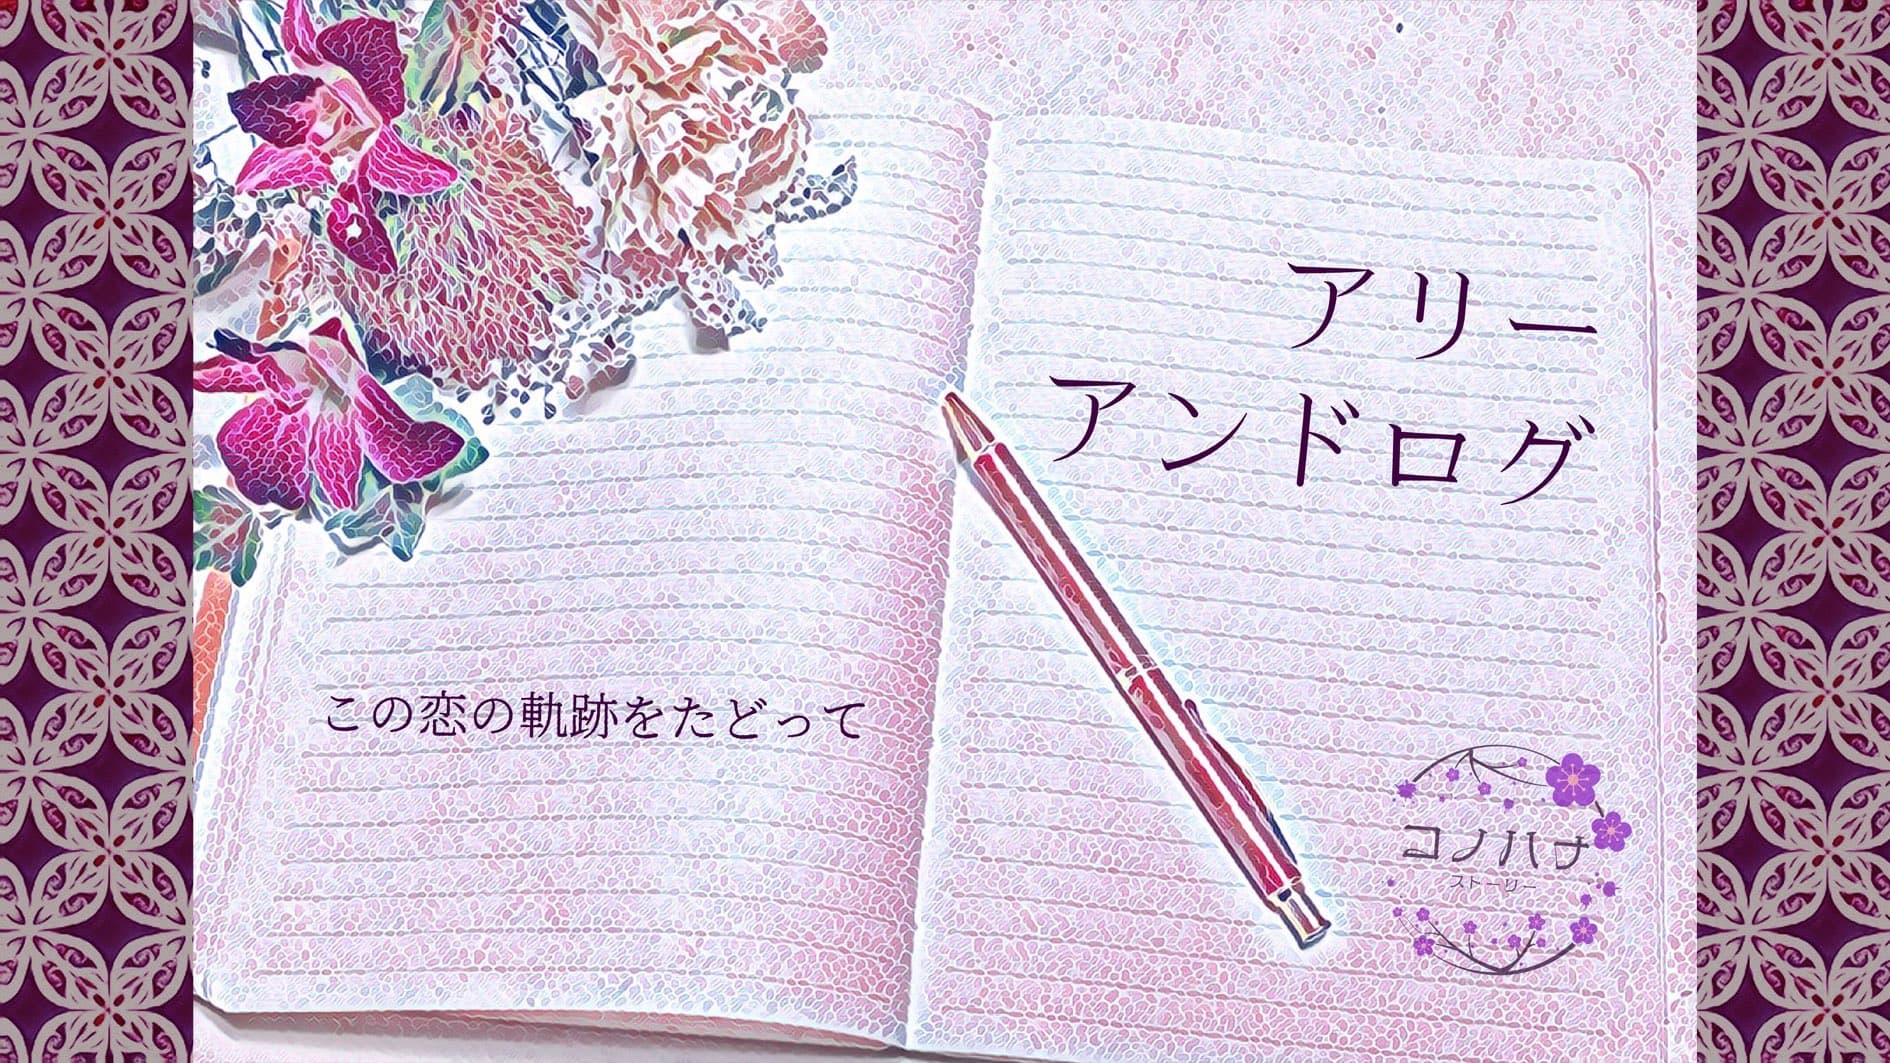 アリー
アンドログ
この恋の軌跡をたどって
コノハナ
ストーリー